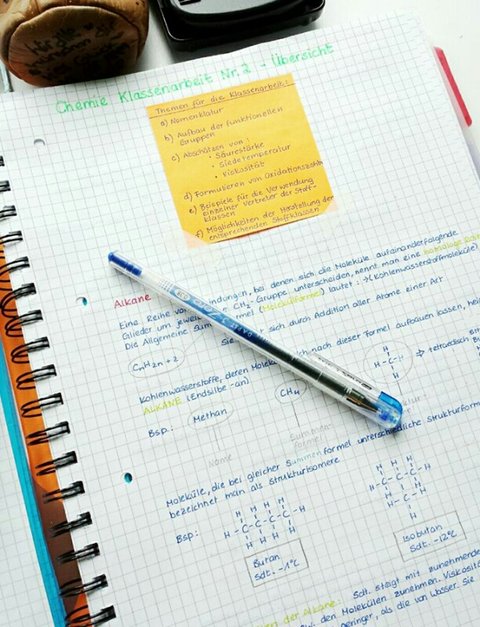 Chemie Klassenarbeit Nr. 2 - Übersicht
Themen für die Klassenarbeit:
a) Nomenklatur
b) Aufbau der funktionellen
Gruppen
c) Abschätzen von:
• Säurestärke
• Siedetemperatur
• Viskosität
d) Formulieren von Oxidationszahlen
e) Beispiele für die Verwendung
einzelner Vertreter der Stoff-
klassen
f) Möglichkeiten der Herstellung der
entsprechenden Stoffklassen
Alkane
Eine Reihe von bindungen, bei denen sich die Moleküle aufeinanderfolgende
Glieder um jeweils CH2-Gruppe unterscheiden, nennt man eine homologe
Die Allgemeine Summ formel (Molekülformel) lautet: →(Kohlenwasserstoffmoleküle)
sie sich durch Addition aller Atome einer Art
CnH2n+2
Kohlenwasserstoffe, deren Molekü ich nach dieser Formel aufbauen lassen,
ALKANE (Endsilbe -an)
Bsp.: Methan CH4 H H-C-H H ⇒ tetraedrisch
Name Summen-
formel
Moleküle, die bei gleicher Summenformel unterschiedliche Strukturform
bezeichnet man als Strukturisomere
Bsp:
H H H H
H-C-C-C-C-H
H H H H
Butan
Sdt. -1°C
Isobutan
Sdt. -12°C
der Alkane: Sdt. steigt mit zunehmende
den Molekülen zunehmen. Viskosität
geringer, als die von Wasser. Sie